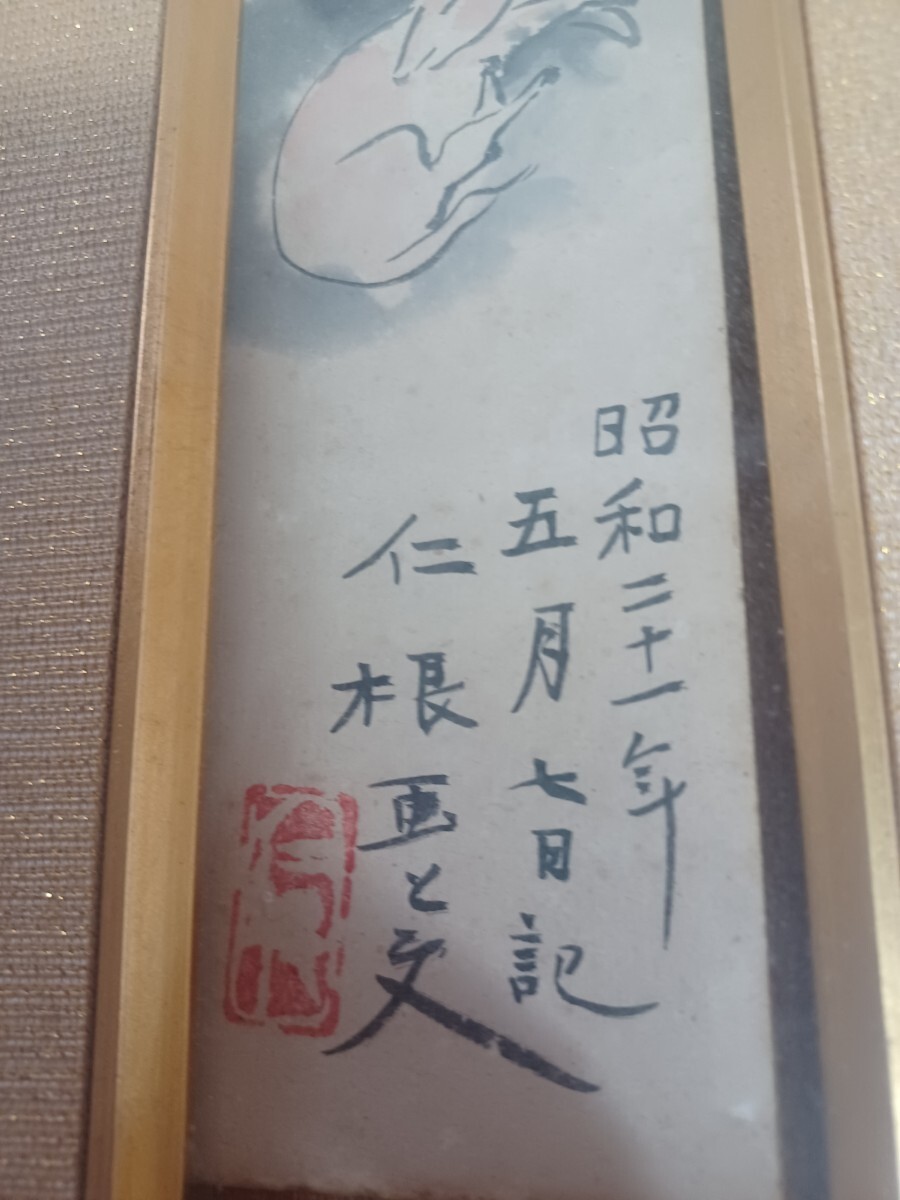 昭和二十一年
五月七日記
仁根画と文